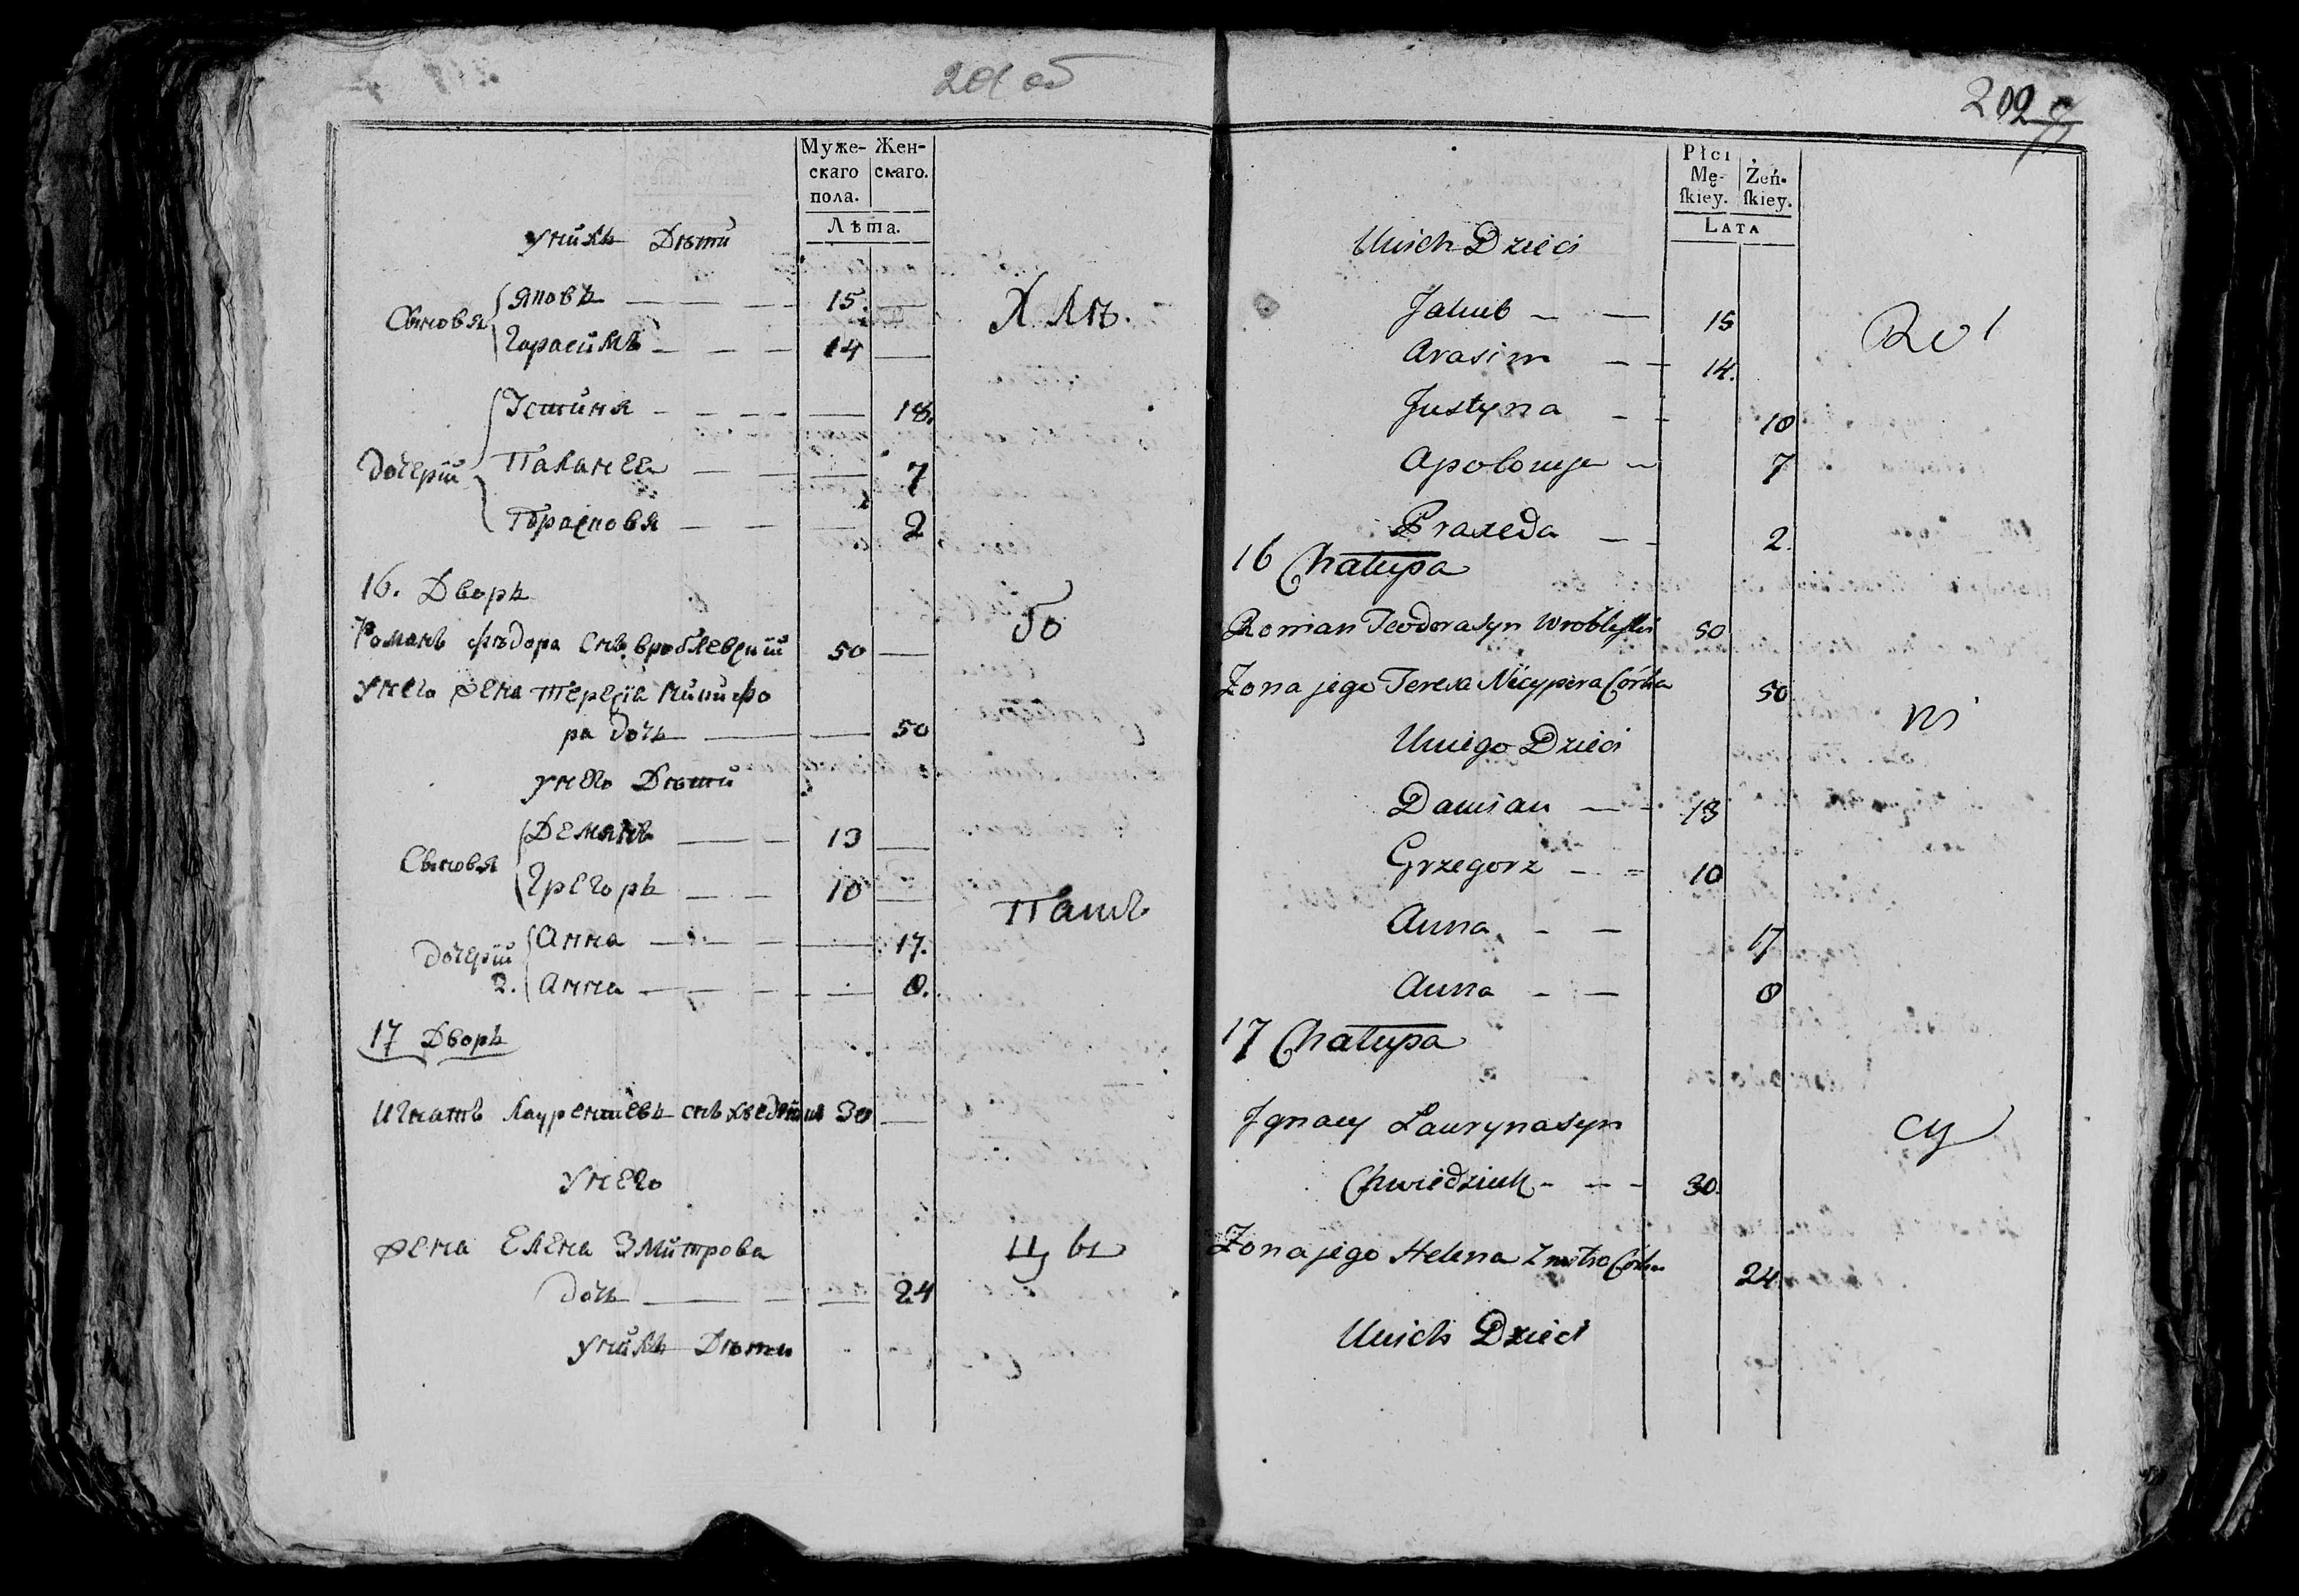 201 об
Муже- Жен-
скаго скаго.
пола.
Лѣта.
Унихъ Дѣти
Сыновя
Яковъ — — — 15. —
Гарасимъ — — — 14 —
Дочерій
Устиня — — — — 18.
Паланея — — — 7
Прасковя — — — 2
Хлѣ.
16. Дворъ
Романъ Фѣдора снъ Врублевскій 50 —
бо
Унего жена Терезія Никифо
ра дочь — — 50
Унего Дѣти
Сыновя
Демянъ — — 13 —
Грегоръ — — 10 —
Дочерій
2.
Анна — — — 17.
Анна — — — 8.
Паше
17 Дворъ
Игнатъ Лаурентиевъ снъ 30 —
Унего
жена Елена Змитрова
дочь — — — 24
Унихъ Дѣти
цы
202
Płci
Mę- Żeń-
ſkiey. ſkiey.
LATA
Unich Dzieci
Jakub — — 15
Arasim — — 14.
Justyna — — 18
Apolonija — 7
Praxeda — — 2.
Rol
16 Chałupa
Roman Teodora syn Wroblewski 50
Żona jego Teresa Nicypera Córka 50
ni
Uniego Dzieci
Damian — — 13
Grzegorz — = 10
Anna — — 17
Anna — — 8
17 Chałupa
Jgnacy Lauryna syn
cy
Chwiedziuk — — — 30.
Żona jego Helena Zmitra Córka 24
Unich Dzieci